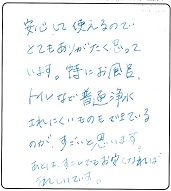 安心して使えるので
とてもありがたく思って
います。特にお風呂、
トイレなど普通浄水
されにくいものもできている
のが、すごいと思います。
あとは、すこしでもお安くなれば
うれしいです。